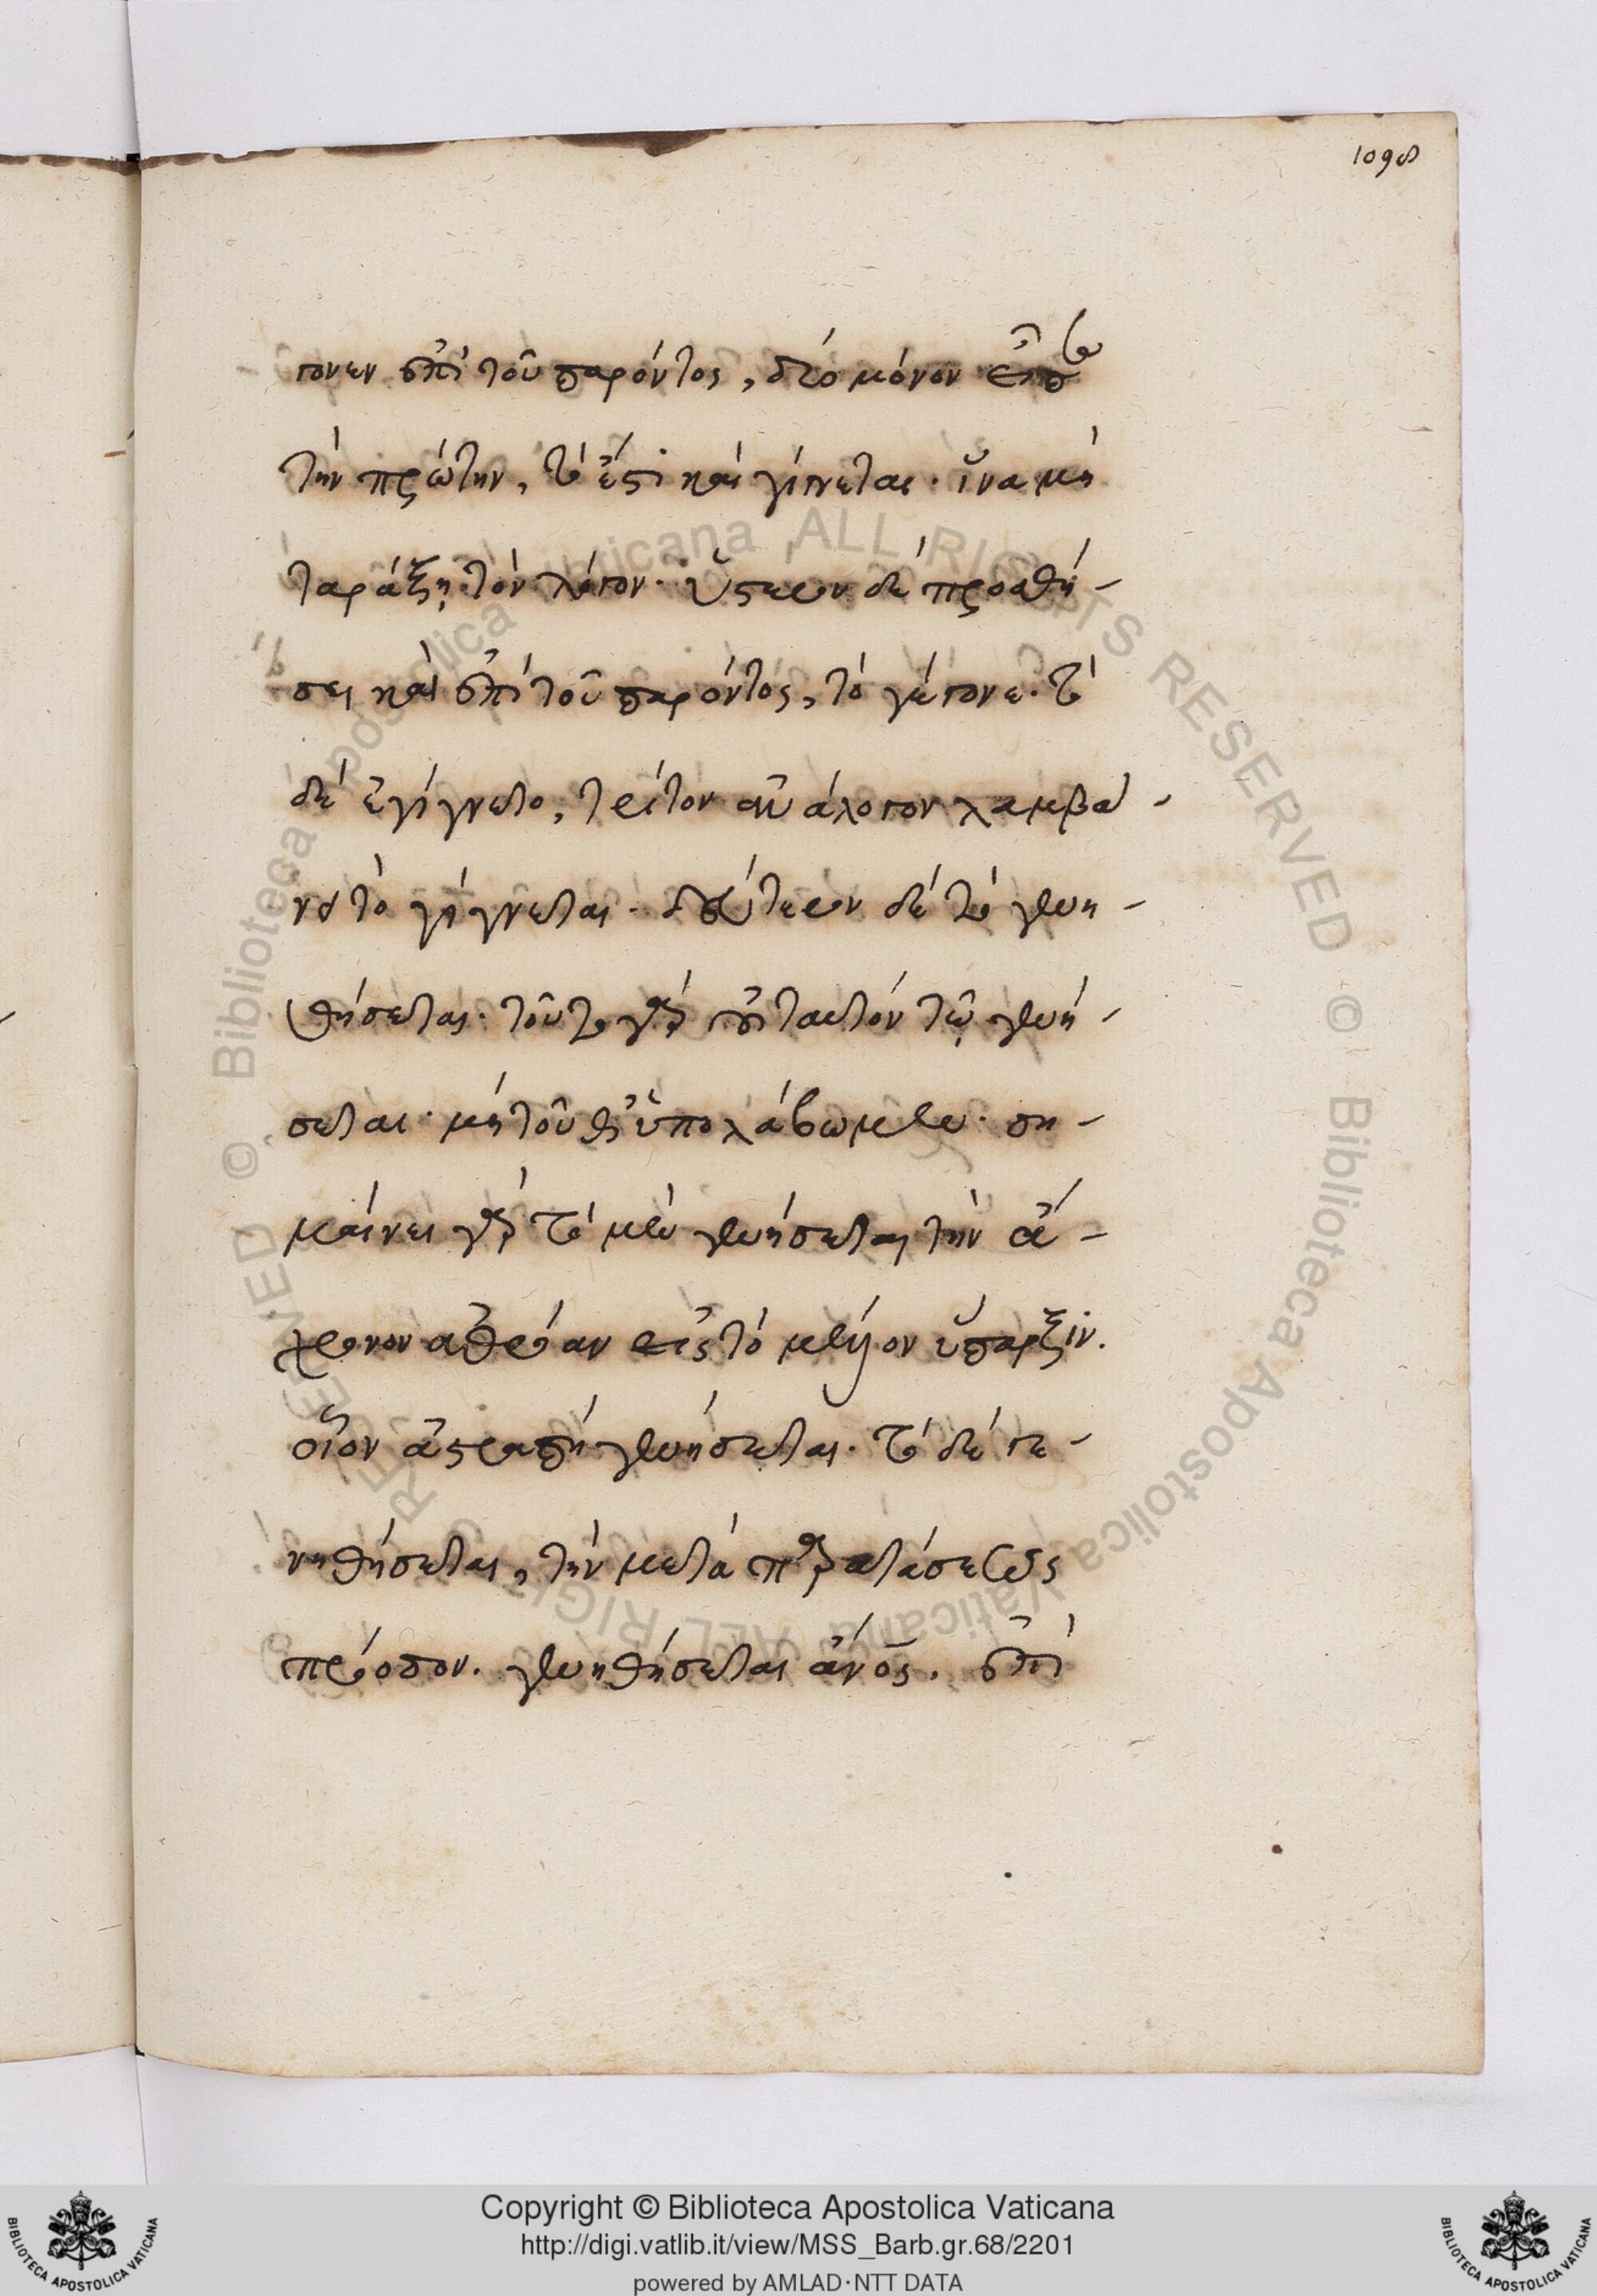 1098
γονεν ἐπὶ τοῦ παρόντος, διὸ μόνον εἶπε
τὴν πρώτην, τὸ ἔστι καὶ γίνεται· ἵνα μὴ
ταράξῃ τὸν λόγον· ὕστερον δὲ προσθή-
σει καὶ ἐπὶ τοῦ παρόντος, τὸ γέγονε· τὸ
δὲ ἐγίγνετο, τρίτον
τὸ γίγνεται· δεύτερον δὲ τὸ γενη-
θήσεται· τοῦτο γὰρ ταυτὸν τῷ γενή-
σεται· μὴ τοῦθ' ὑπολάβωμεν· ση-
μαίνει γὰρ τὸ μὲν γενήσεται τὴν ἄ-
χρονον ἀθρόαν εἰς τὸ μέλλον ὕπαρξιν.
οἷον ἀστραπὴ γενήσεται· τὸ δὲ γε-
νηθήσεται, τὴν μετὰ παρατάσεως
πρόοδον. γενηθήσεται ἄνος. ἐπὶ
Copyright © Biblioteca Apostolica Vaticana
http://digi.vatlib.it/view/MSS_Barb.gr.68/2201
powered by AMLAD·NTT DATA
BIBLIOTECA APOSTOLICA VATICANA
BIBLIOTECA APOSTOLICA VATICANA
© Biblioteca Apostolica Vaticana ALL RIGHTS RESERVED
© Biblioteca Apostolica Vaticana ALL RIGHTS RESERVED